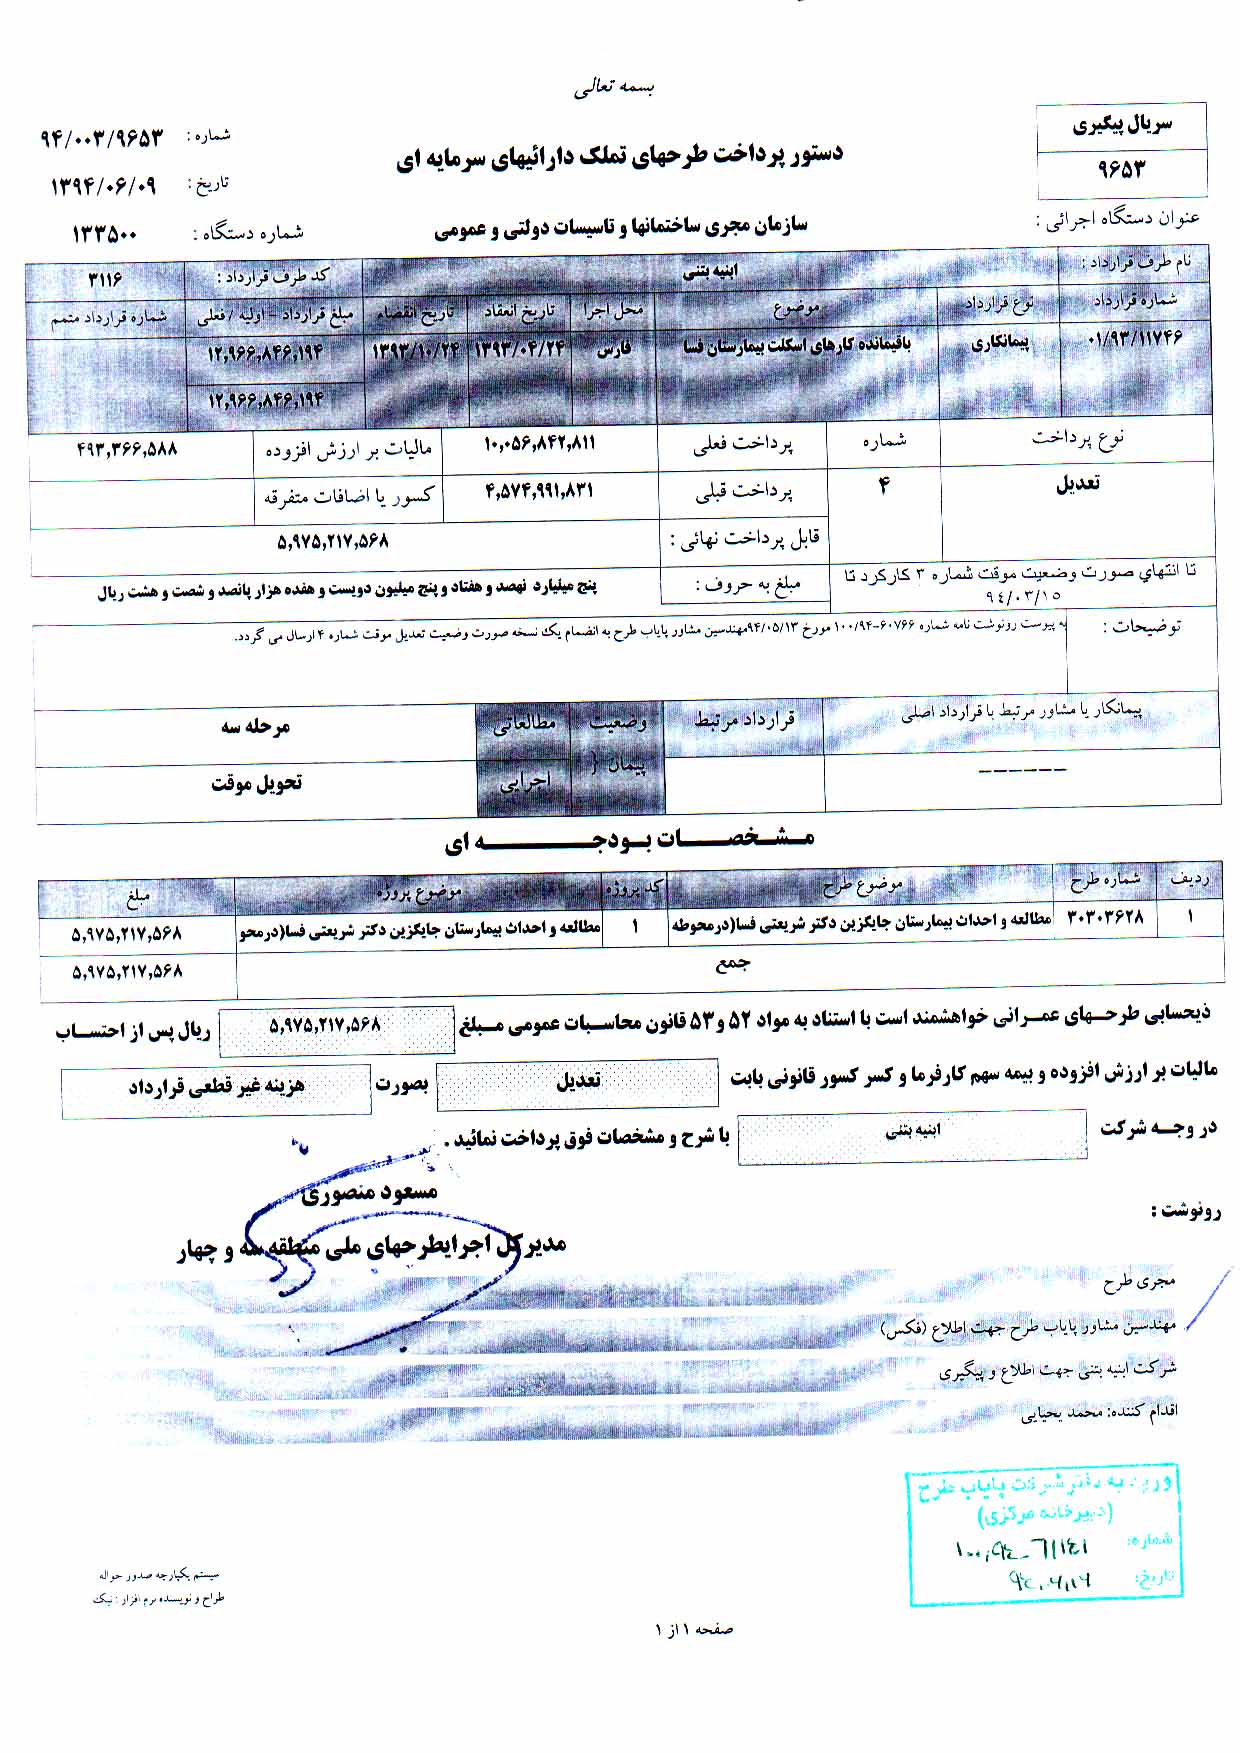 بسمه تعالی
سریال پیگیری
۹۶۵۳
دستور پرداخت طرحهای تملک دارائیهای سرمایه ای
شماره : ۹۴/۰۰۳/۹۶۵۳
تاریخ : ۱۳۹۴/۰۶/۰۹
عنوان دستگاه اجرائی : سازمان مجری ساختمانها و تاسیسات دولتی و عمومی
شماره دستگاه : ۱۳۳۵۰۰
نام طرف قرارداد : ابنیه بتنی کد طرف قرارداد : ۳۱۱۶
شماره قرارداد نوع قرارداد موضوع محل اجرا تاریخ انعقاد تاریخ انقضاء مبلغ قرارداد - اولیه / فعلی شماره قرارداد متمم
۰۱/۹۳/۱۱۷۴۶ پیمانکاری باقیمانده کارهای اسکلت بیمارستان فسا فارس ۱۳۹۳/۰۴/۲۴ ۱۳۹۳/۱۰/۲۴ ۱۲,۹۶۶,۸۴۶,۱۹۴
۱۲,۹۶۶,۸۴۶,۱۹۴
نوع پرداخت شماره پرداخت فعلی ۱۰,۰۵۶,۸۴۲,۸۱۱ مالیات بر ارزش افزوده ۴۹۳,۳۶۶,۵۸۸
تعدیل ۴ پرداخت قبلی ۴,۵۷۴,۹۹۱,۸۳۱ کسور یا اضافات متفرقه
قابل پرداخت نهائی : ۵,۹۷۵,۲۱۷,۵۶۸
تا انتهاي صورت وضعيت موقت شماره ۳ کارکرد تا ۹٤/۰۳/۱٥
مبلغ به حروف : پنج میلیارد نهصد و هفتاد و پنج میلیون دویست و هفده هزار پانصد و شصت و هشت ریال
توضیحات : به پیوست رونوشت نامه شماره ۶۰۷۶۶-۱۰۰/۹۴ مورخ ۹۴/۰۵/۱۳مهندسین مشاور پایاب طرح به انضمام یک نسخه صورت وضعیت تعدیل موقت شماره ۴ ارسال می گردد.
پیمانکار یا مشاور مرتبط با قرارداد اصلی قرارداد مرتبط وضعیت پیمان { مطالعاتی مرحله سه
------ اجرایی تحویل موقت
مـشـخـصـــات بــودجـــــــه ای
ردیف شماره طرح موضوع طرح کد پروژه موضوع پروژه مبلغ
۱ ۳۰۳۰۳۶۲۸ مطالعه و احداث بیمارستان جایگزین دکتر شریعتی فسا(درمحوطه ۱ مطالعه و احداث بیمارستان جایگزین دکتر شریعتی فسا(درمحو ۵,۹۷۵,۲۱۷,۵۶۸
جمع ۵,۹۷۵,۲۱۷,۵۶۸
ذیحسابی طرحــهای عمــرانی خواهشمند است با استناد به مواد ۵۲ و ۵۳ قانون محاسبات عمومی مـبلغ ۵,۹۷۵,۲۱۷,۵۶۸ ریال پس از احتســاب
مالیات بر ارزش افزوده و بیمه سهم کارفرما و کسر کسور قانونی بابت تعدیل بصورت هزینه غیر قطعی قرارداد
در وجـه شرکت ابنیه بتنی با شرح و مشخصات فوق پرداخت نمائید .
مسعود منصوری
مدیرکل اجرایطرحهای ملی منطقه سه و چهار
رونوشت :
مجری طرح
مهندسین مشاور پایاب طرح جهت اطلاع (فکس)
شرکت ابنیه بتنی جهت اطلاع و پیگیری
اقدام کننده: محمد یحیایی
ورود به دفتر شرکت پایاب طرح
(دبیرخانه مرکزی)
شماره:
تاریخ:
سیستم یکپارچه صدور حواله
طراح و نویسنده نرم افزار : نیک
صفحه ۱ از ۱